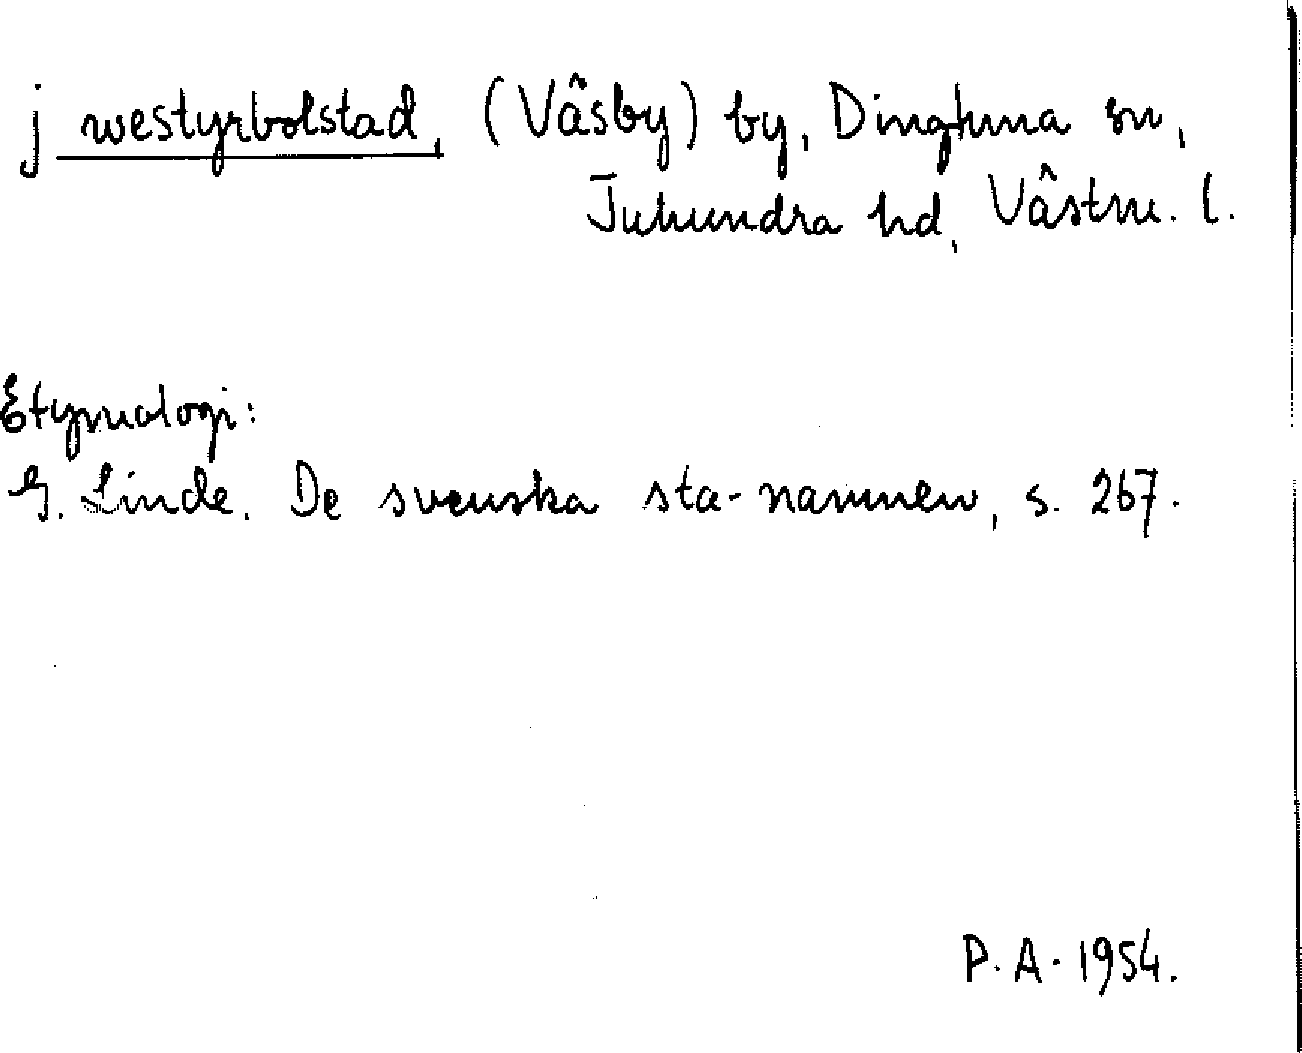 j westyrbolstad, (Väsby) by, Dingtuna sn,
Tuhundra hd, Västm. l.
Etymologi:
G. Linde. De svenska sta-namnen, s. 267.
P. A. 1954.